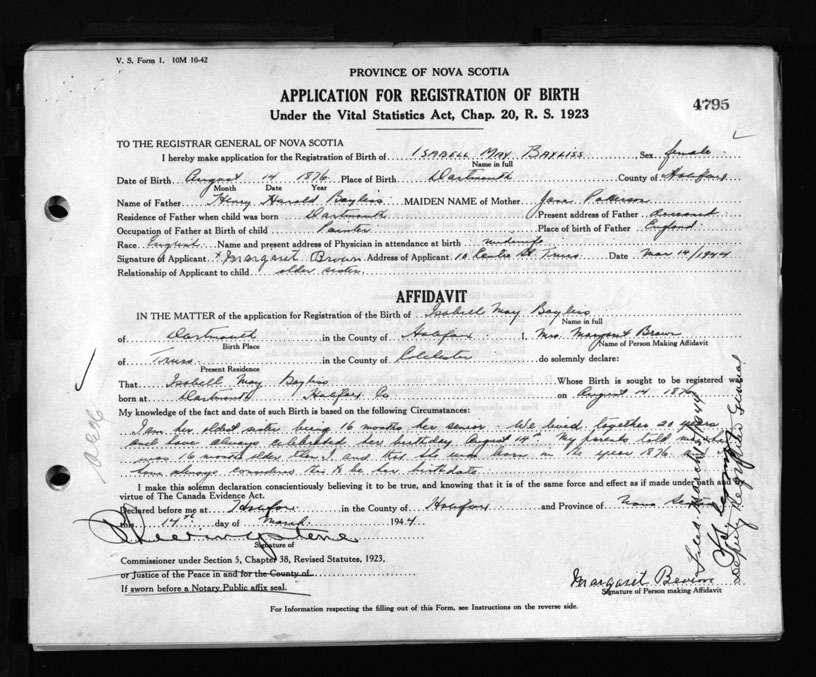 V. S. Form 1. 10M 10-42
PROVINCE OF NOVA SCOTIA
APPLICATION FOR REGISTRATION OF BIRTH
4795
Under the Vital Statistics Act, Chap. 20, R. S. 1923
TO THE REGISTRAR GENERAL OF NOVA SCOTIA
I hereby make application for the Registration of Birth of ISABELL MAY BAYLISS Sex female
Name in full
Date of Birth August 14 1876 Place of Birth Dartmouth County of Halifax
Month Date Year
Name of Father Henry Harold Bayliss MAIDEN NAME of Mother Jane
Residence of Father when child was born Dartmouth Present address of Father deceased
Occupation of Father at Birth of child Painter Place of birth of Father England
Race English Name and present address of Physician in attendance at birth midwife
Signature of Applicant x Margaret Brown Address of Applicant 10 St, Truro Date Mar 14/1944
Relationship of Applicant to child older sister
AFFIDAVIT
IN THE MATTER of the application for Registration of the Birth of Isabell May Bayliss
Name in full
of Dartmouth in the County of Halifax I, Mrs. Margaret Brown
Birth Place Name of Person Making Affidavit
of Truro in the County of Colchester do solemnly declare:
Present Residence
That Isabell May Bayliss Whose Birth is sought to be registered was
born at Dartmouth Halifax Co. on August 14 1876
My knowledge of the fact and date of such Birth is based on the following Circumstances:
I am her oldest sister being 16 months her senior. We lived together 20 years
and have always celebrated her birthday August 14th. My parents told me
was 16 months older than I and that she was born in the year 1876 and
have always this to be her birthdate.
I make this solemn declaration conscientiously believing it to be true, and knowing that it is of the same force and effect as if made under oath and
virtue of The Canada Evidence Act.
Declared before me at Halifax in the County of Halifax and Province of Nova Scotia
this 14th day of March 1944
Signature of
Commissioner under Section 5, Chapter 38, Revised Statutes, 1923,
or Justice of the Peace in and for the County of
If sworn before a Notary Public affix seal.
Margaret Brown
Signature of Person making Affidavit
For Information respecting the filling out of this Form, see Instructions on the reverse side.
Filed March 1944
Deputy Registrar General